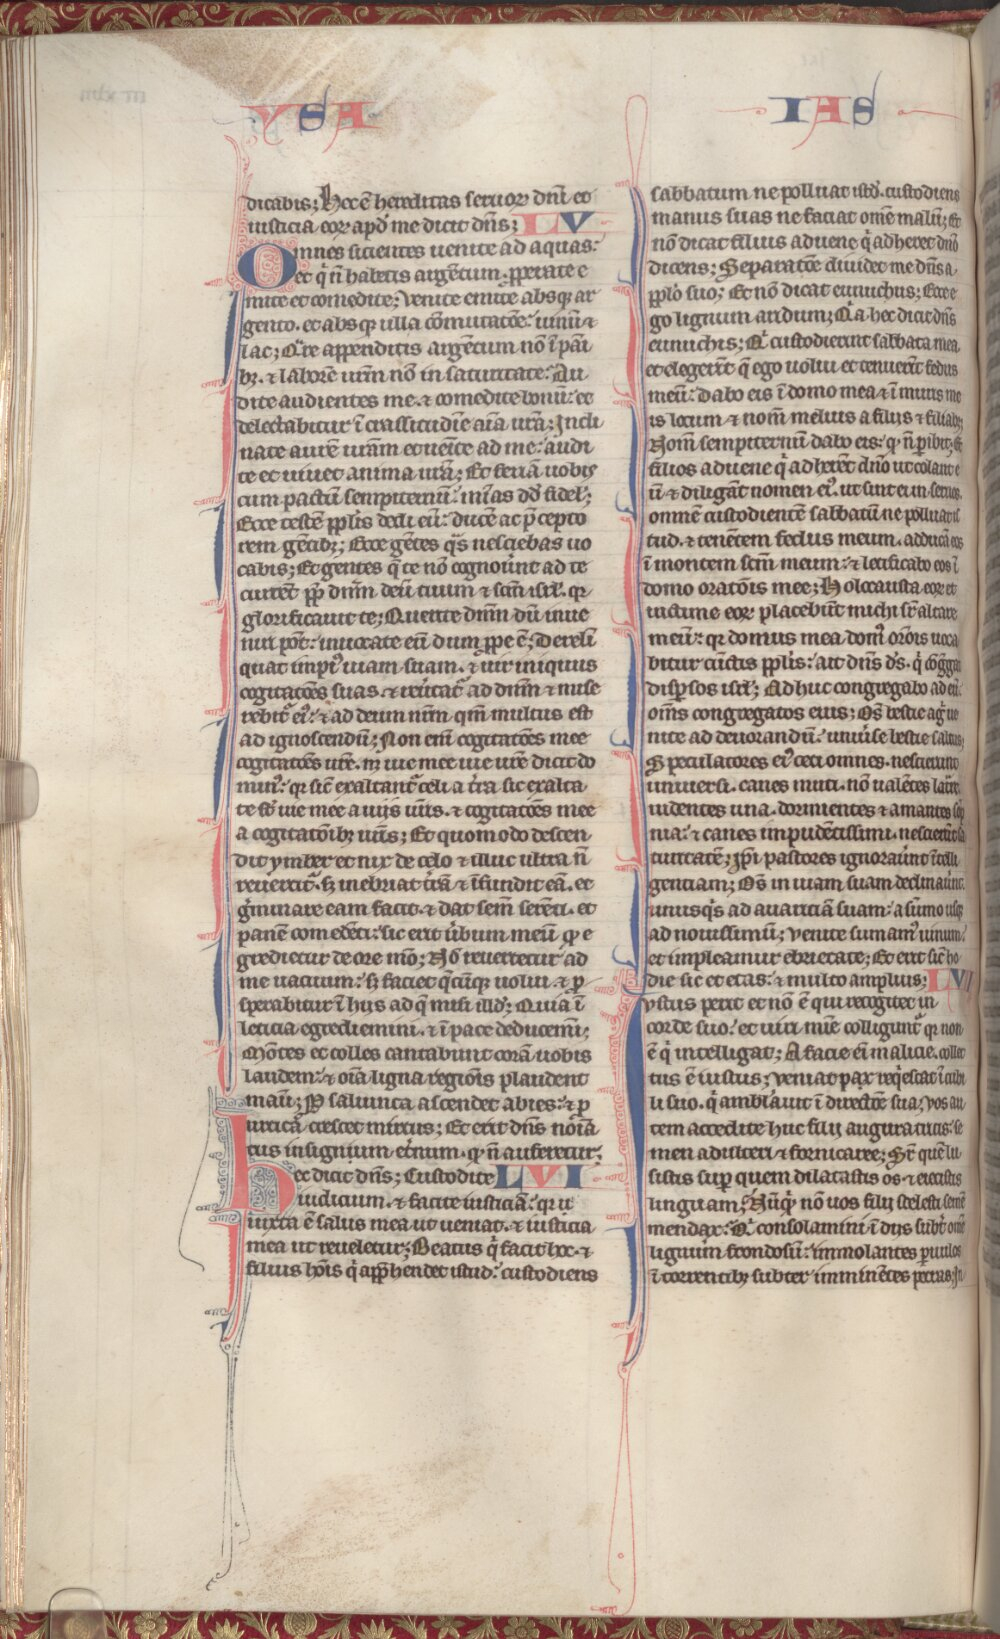 YSA IAS
dicabis; Hec ē hereditas seruoꝝ dn̄i et
iusticia eoꝝ apđ me dicit dn̄s; LV
Omnes sicientes uenite ad aquas:
et q̇ n̄ habetis argētum. ꝓperate e
mite et comedite: Venite emite absqꝫ ar
gento. et absqꝫ ulla cōmutatōe: uinū ⁊
lac; Q̄re appenditis argētum nō ī pāi
bꝫ. ⁊ laborē ur̄m nō in saturitate: Au
dite audientes me. ⁊ comedite bonū: et
delectabitur ī crassitudīe aīa ur̄a; Incli
nate aurē ur̄am et uenīte ad me: audi
te et uiuet anima ur̄a; Et feriā uobis
cum pactū sempiternū: mīas dđ fidel̓;
Ecce testē ppl̓is dedi eū: ducē ac p̄cepto
rem gētibꝫ; Ecce gētes q̄s nesciebas uo
cabis; Et gentes q̄ te nō cognoūnt ad te
current ꝓp̄ dn̄m deū tuum ⁊ scm̄ isrl̓. qꝛ
glorificauit te; Querite dn̄m dū inue
niri pōt: inuocate eū dum ꝓpe ē; Dereli
quat impi᷒ uiam suam. ⁊ uir iniquus
cogitatōes suas. ⁊ reūtat᷑ ad dn̄m ⁊ mise
rebit᷑ ei᷒: ⁊ ad deum nr̄m qm̄ multus est
ad ignoscendū; Non enī cogitatōes mee
cogitatōes ur̄e. nͨ uie mee uie ur̄e dicit do
min᷒: qꝛ sic̄ exaltant᷑ celi a t̄ra sic exalta
te st̄ uie mee a uijs ur̄is. ⁊ cogitatōes mee
a cogitatōibꝫ ur̄is; Et quomodo descen
dit ymber et nix de celo ⁊ illuc ultra n̄
reuertit᷑. sꝫ inebriat t̄rā ⁊ īfundit eā. et
g̓minare eam facit. ⁊ dat sem̄ serēti. et
panē comedēti: sic erit ūbum meū qđ e
gredietur de ore mō; Nō reuertetur ad
me uacuum: sꝫ faciet q̄cūqꝫ uolui. ⁊ ꝓ
sperabitur ī hijs ad q̄ misi illđ; Quia ī
leticia egrediemini. ⁊ ī pace deducemī;
Mōtes et colles cantabunt corā uobis
laudem: ⁊ oīa ligna regiōis plaudent
manū; P̱ saliunca ascendet abies: ⁊ ꝓ
urticā crescet mirtus; Et erit dn̄s noīa
tus in signum et̄num. qđ n̄ auferetur;
Hec dicit dn̄s; Custodite LVI
iudicium. ⁊ facite iusticiā: qꝛ ii
iuxta ē salus mea ut ueniat. ⁊ iusticia
mea ut reueletur; Beatus q̇ facit hoc. ⁊
filius hōis q̇ apprehendet istud: custodiens
sabbatum ne polluat istđ. custodiens
manus suas ne faciat om̄e malū; Et
nō dicat filius aduene q̇ adheret dn̄o
dicens; Separatōe diuidet me dn̄s a
ppl̓o suo; Et nō dicat eunuchus; Ecce e
go lignum aridum; Qꝛ a hec dicit dn̄s
eunuchis; Q̇ custodierint sabbata mea
et elegerīt q̄ ego uolui et tenuerīt fedus
meū: Dabo eis ī domo mea ⁊ ī muris me
is locum ⁊ nom̄ melius a filijs ⁊ filiabꝫ
Nom̄ sempiternū dabo eis: qđ n̄ ꝑibit; Et
filios aduene q̇ adherēt dn̄o ut colant e
ū ⁊ diligāt nomen ei᷒. ut sint ei in seruos.
omnē custodientē sabbatū ne polluat is
tud. ⁊ tenētem fedus meum. adducā eos
ī montem scm̄ meum: ⁊ letificabo eos ī
domo oratōis mee; Holocausta eoꝝ et
uictime eoꝝ placebūt michi sr̄ altare
meū: qꝛ domus mea dom᷒ or̄ōis uoca
bitur cūctis ppl̓is: ait dn̄s ds̄. q̇ cōg̓gat
disꝑsos isrl̓; Ad huc congregabo ad eū:
om̄s congregatos eius; Om̄s bestie ag̓ ue
nite ad deuorandū: uniūse bestie saltus;
Speculatores ei᷒ ceci omnes. nescierunt
uniuersi. canes muti. nō ualētes latrare
uidentes uana. dormientes ⁊ amantes sōp
nia: ⁊ canes impudētissimi. nescierūt sa
turitatē; Ip̄i pastores ignoraūnt ītelli
gentiam; Om̄s in uiam suam declinaūnt.
unusqͥs ad auaritiā suam: a sūmo usqꝫ
ad nouissimū; Venite sumam᷒ uinum:
et impleamur ebrietate; Et erit sic̄ ho
die sic et cras: ⁊ multo amplius; LVI
ystus perit et nō ē qui recogitet in
corde suo: et uiri mīe colligunt᷑ qꝛ non
ē q̇ intelligat; A facie eī malicie. collec
tus ē iustus; Veniat pax reqͥescat ī cubi
li suo. q̇ ambl̓auit ī directōe sua; Vos au
tem accedite huc filij auguratricis: se
men adulteri ⁊ fornicarie; Sr̄ quē lu
sistis suꝑ quem dilatastis os ⁊ eiecistis
linguam; Nūq̇d nō uos filij scelesti semē
mendax: Q̇ consolamini ī dijs subt᷑ om̄e
lignum frondosū: immolantes ꝑuulos
ī torrentibꝫ subter imminētes petras; In